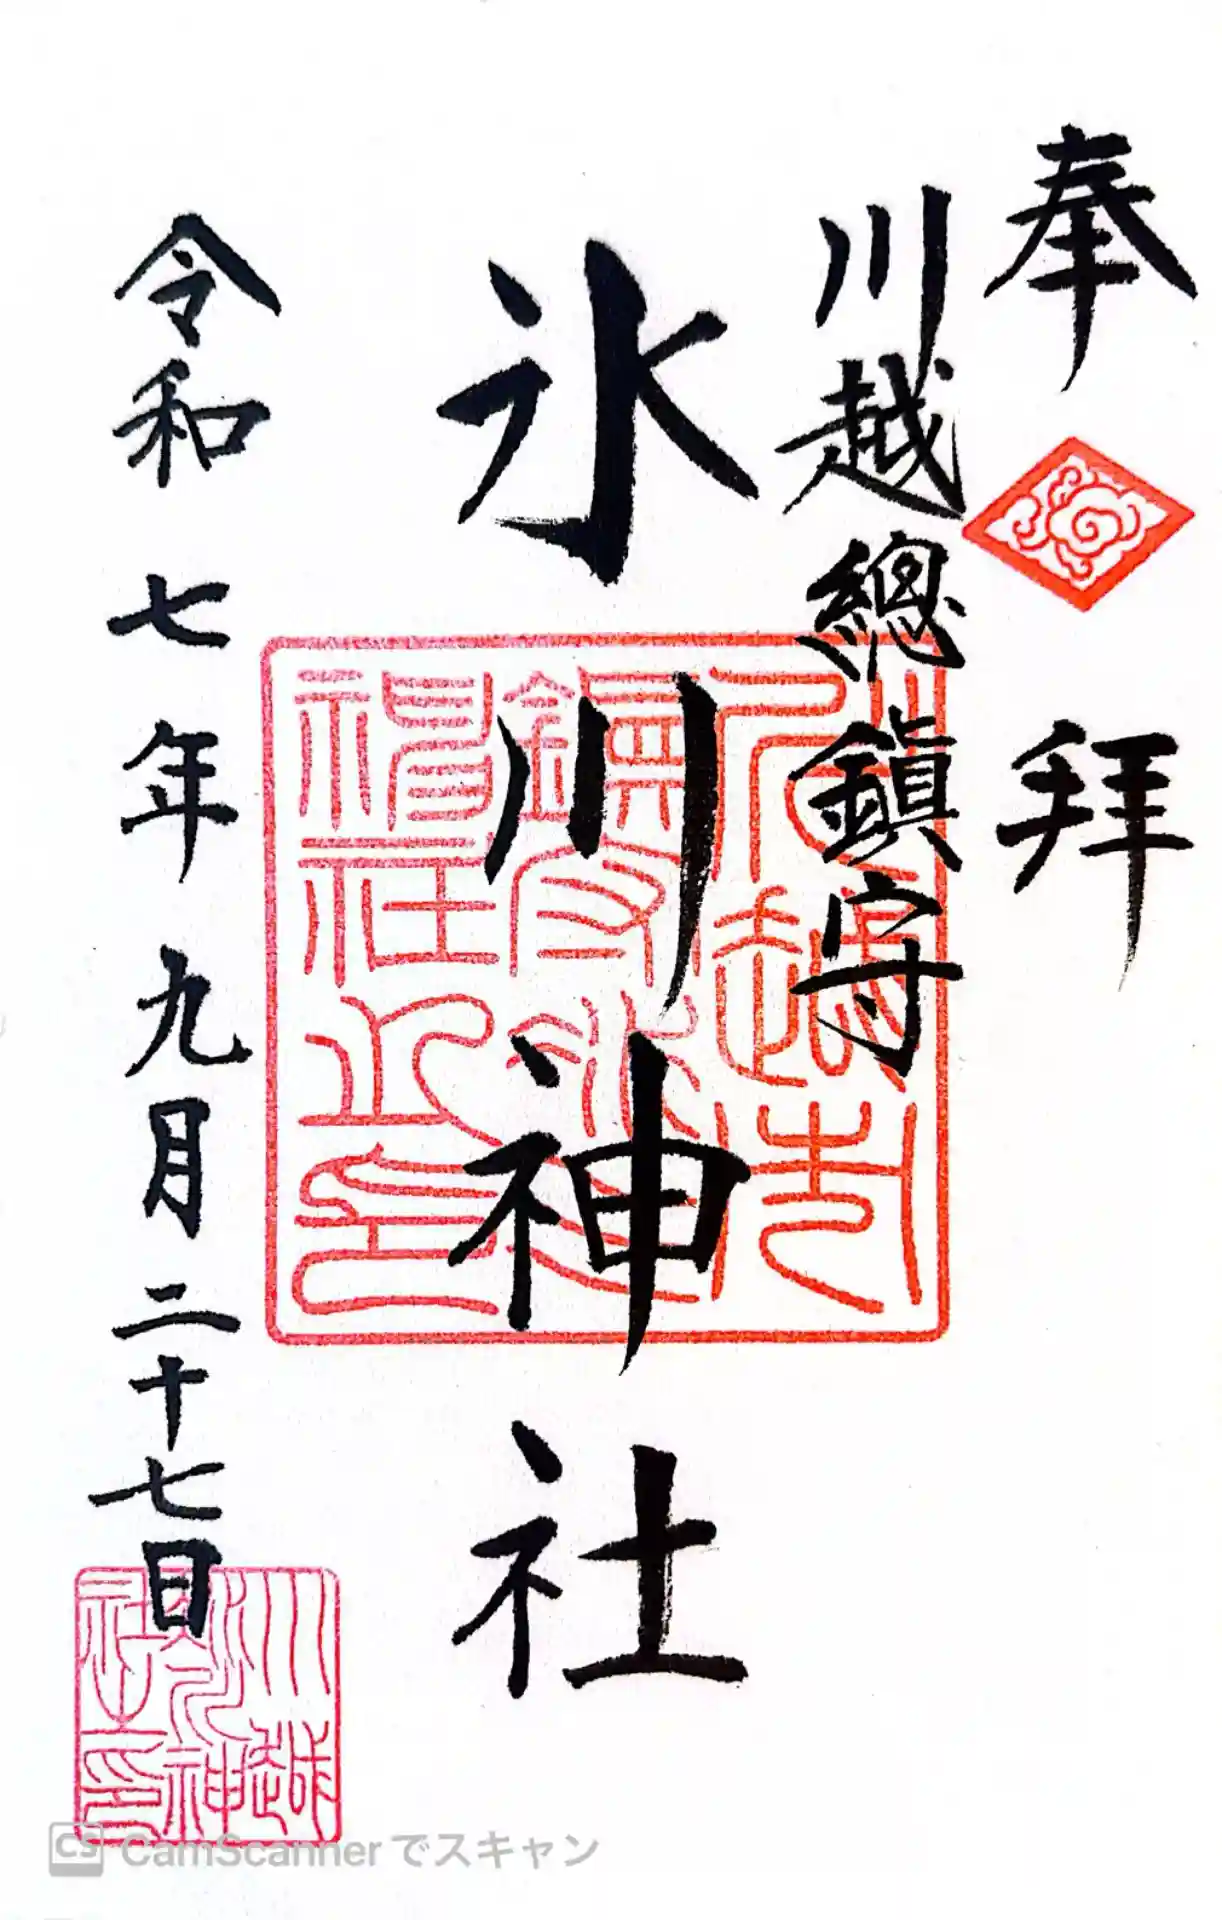 奉拝
川越總鎮守
氷川神社
令和七年九月二十七日
CamScannerでスキャン